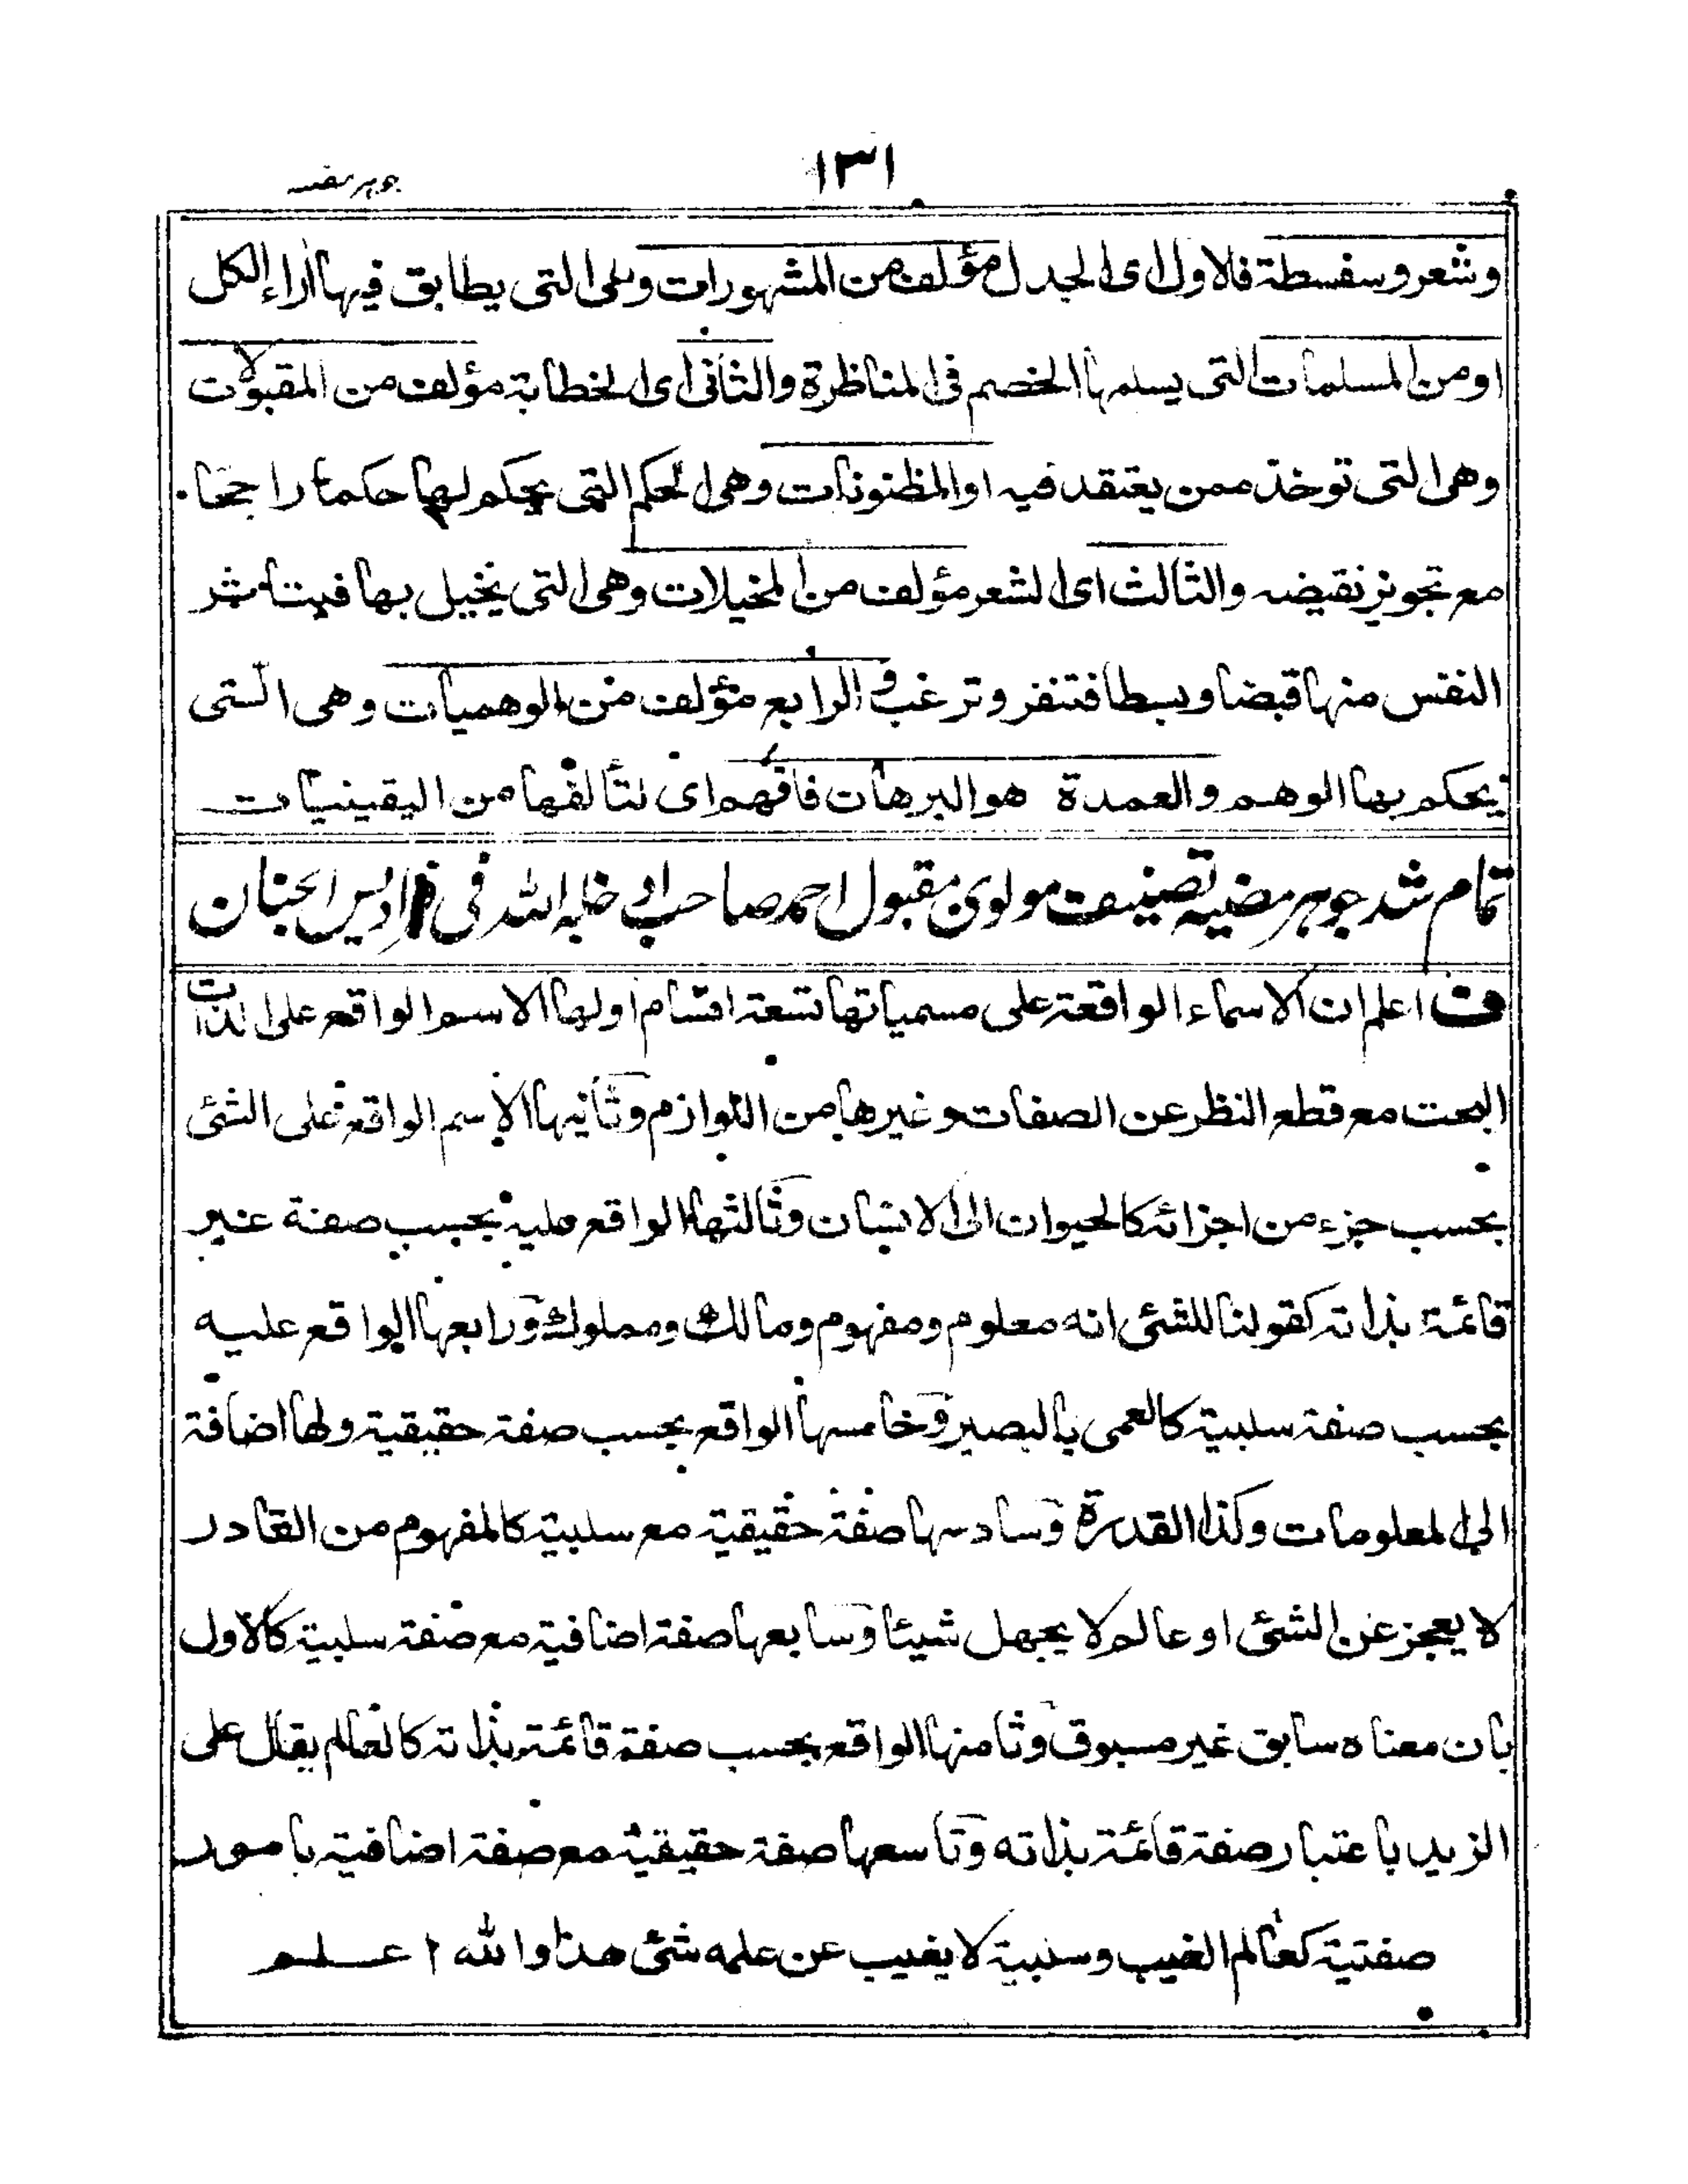 ١٣١
جوہر مضیہ
وشعر وسفسطة فالاول اى الجدل مؤلف من المشهورات وهى التى يطابق فيها اراء الكل
او من المسلمات التى يسلمها الخصم فى المناظرة والثانى اى الخطابة مؤلف من المقبولات
وهى التى توخذ ممن يعتقد فيه او المظنونات وهى الحكم التى يحكم لها حكما راجحا
مع تجويز نقيضه والثالث اى الشعر مؤلف من المخيلات وهى التى يخيل بها فيتاثر
النفس منها قبضا وبسطا فتنفر وترغب و الرابع مؤلف من الوهميات وهى التى
يحكم بها الوهم والعمدة هو البرهان فافهم اى لتألفها من اليقينيات
تمام شد جوہر مضیہ تصنیف مولوی مقبول احمد صاحب ادخله الله فی فرادیس الجنان
ف اعلم ان الاسماء الواقعة على مسمياتها تسعة اقسام اولها الاسم الواقع على الذات
البحت مع قطع النظر عن الصفات وغيرها من اللوازم وثانيها الاسم الواقع على الشئ
بحسب جزء من اجزائه كالحيوان الى الانسان وثالثها الواقع عليه بحسب صفة غير
قائمة بذاته كقولنا للشئ انه معلوم ومفهوم ومالك ومملوك ورابعها الواقع عليه
بحسب صفة سلبية كالعمى بالبصير وخامسها الواقع بحسب صفة حقيقية ولها اضافة
الى المعلومات وكذا القدرة وسادسها صفة حقيقية مع سلبية كالمفهوم من القادر
لا يعجز عن الشئ او عالم لا يجهل شيئا وسابعها صفة اضافية مع صفة سلبية كالاول
بان معناه سابق غير مسبوق وثامنها الواقع بحسب صفة قائمة بذاته كالعالم يقال على
الزيد باعتبار صفة قائمة بذاته وتاسعها صفة حقيقية مع صفة اضافية بامور
صفتية كعالم الغيب وسلبية لا يغيب عن علمه شئ هذا والله اعلم